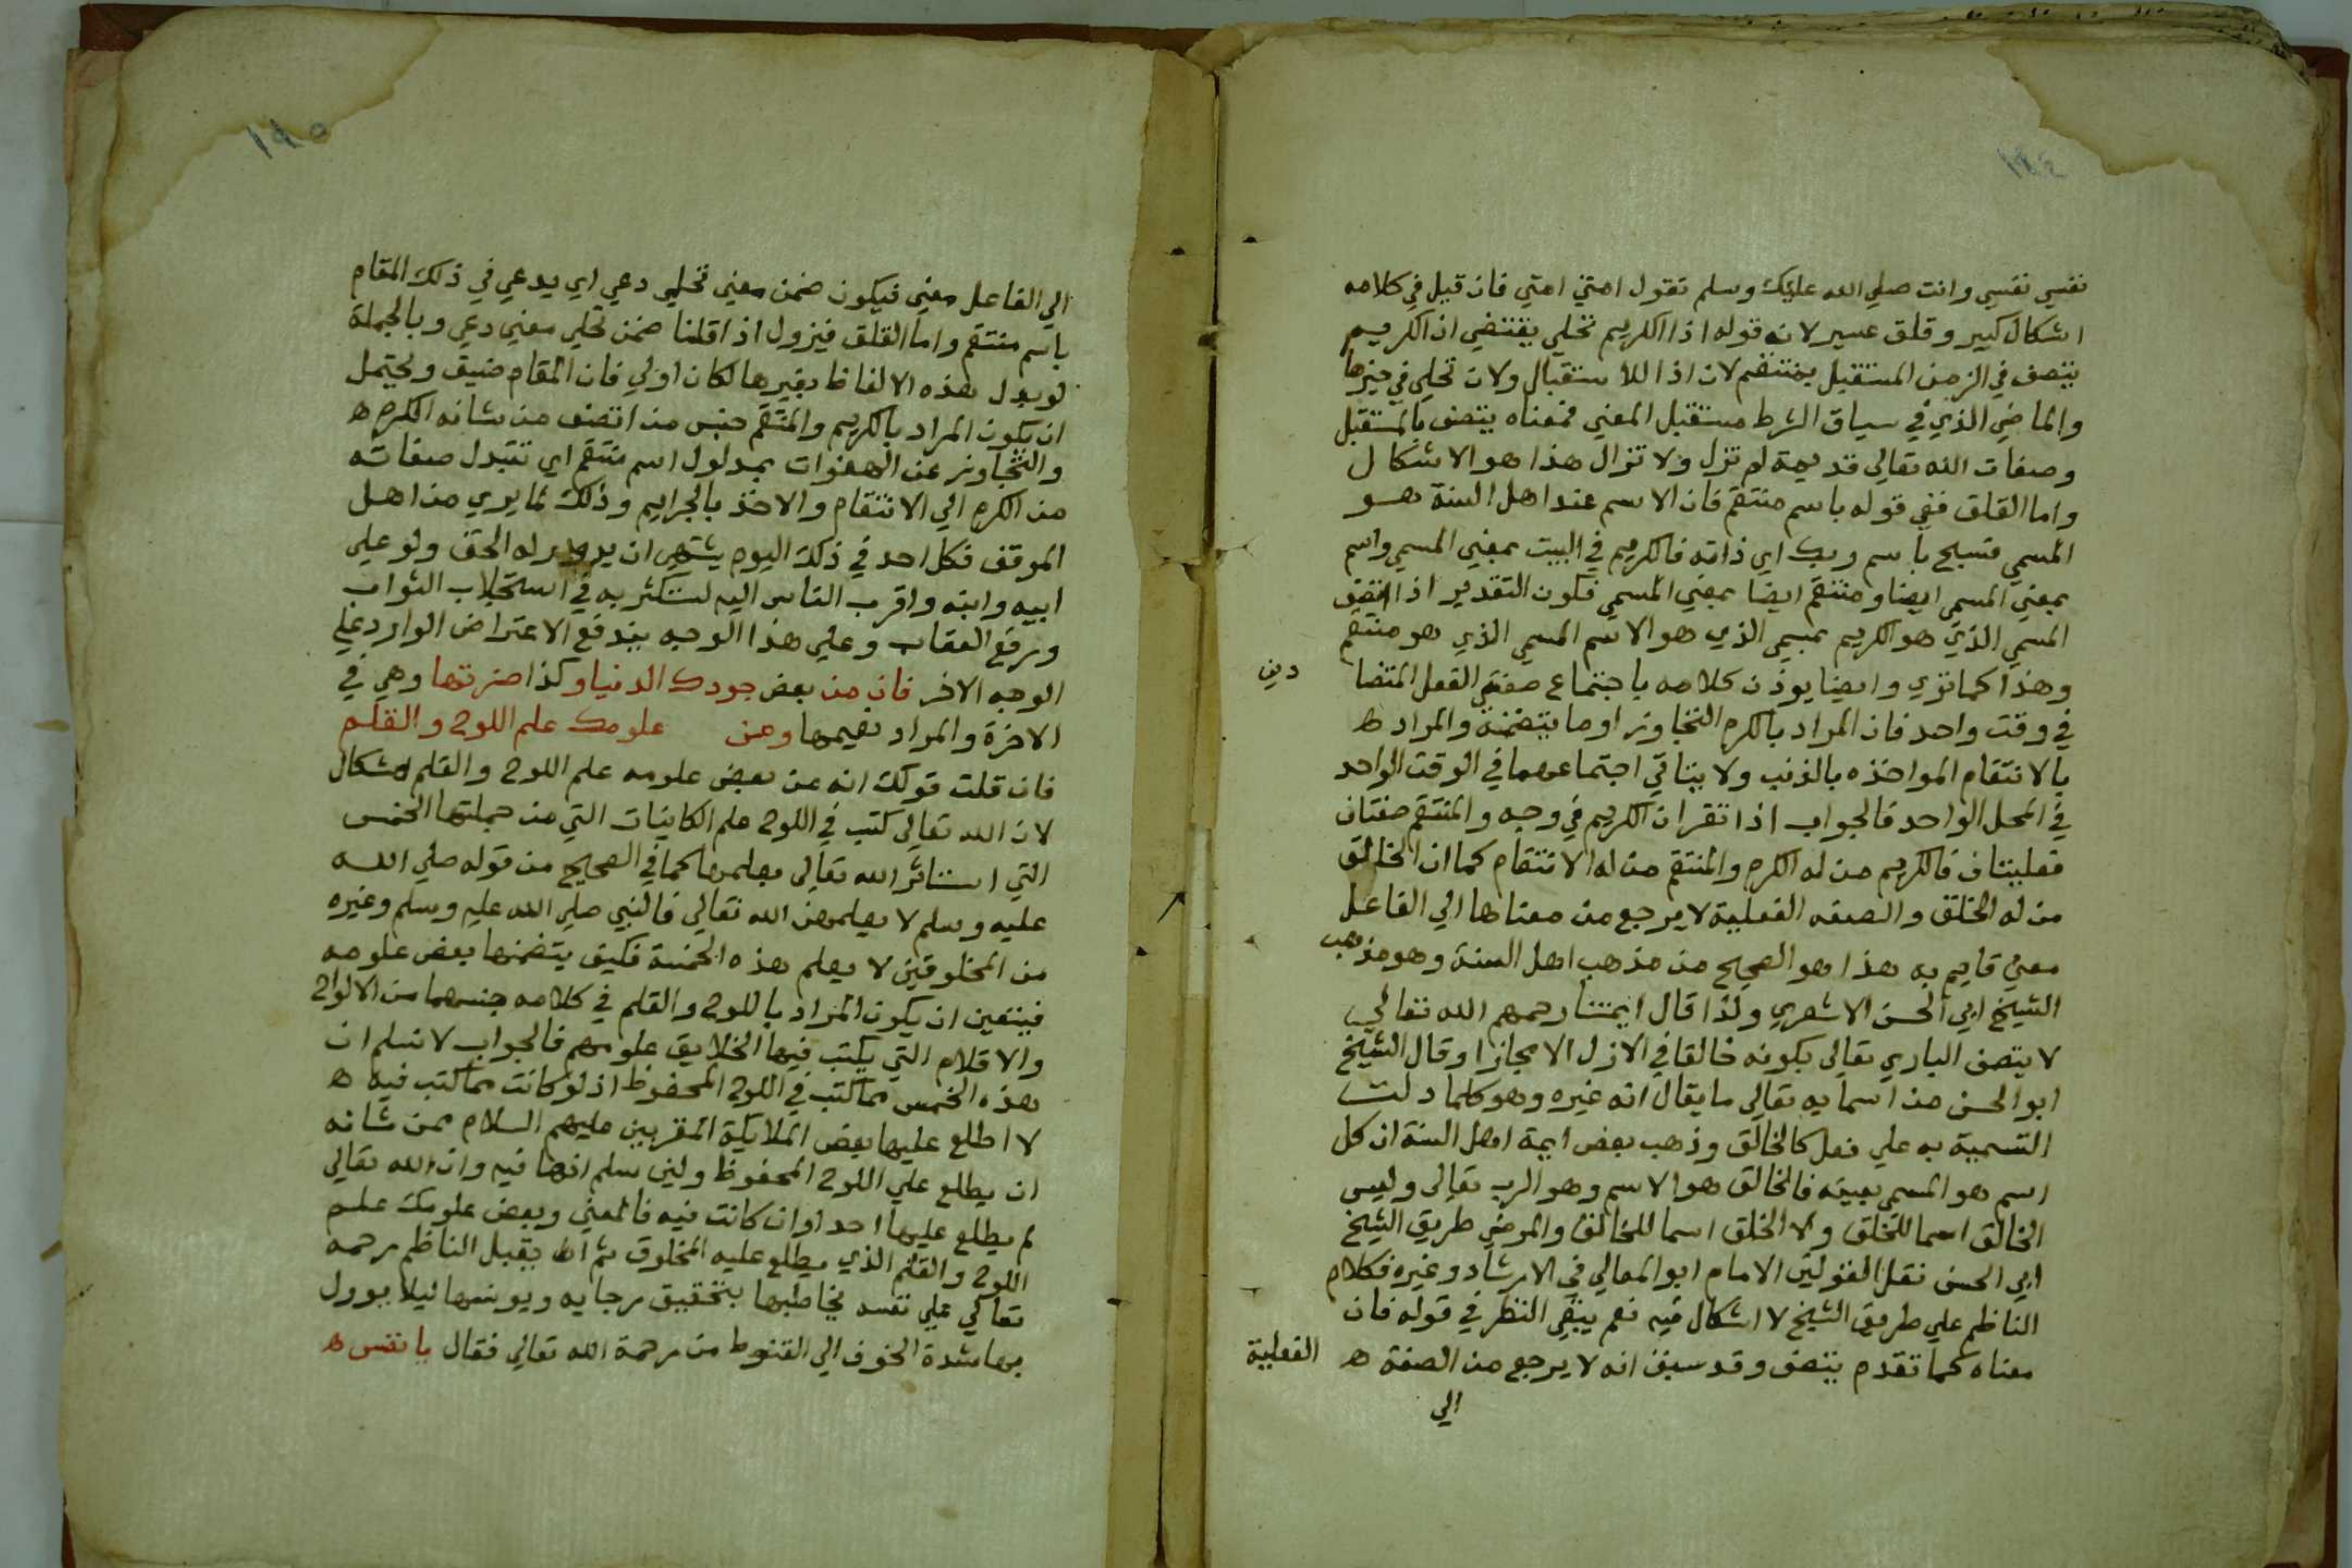 ١٩٤
نفسي نفسي وانت صلي الله عليك وسلم تقول امتي امتي فان قيل في كلامه
اشكال كبير وقلق عسير لان قوله اذا الكريم تحلي يقتضي ان الكريم
يتصف في الزمن المستقبل بمنتقم لان اذا للاستقبال ولان تحلي في حيزها
والماضي الذي في سياق الشرط مستقبل المعني فمعناه يتصف بالمستقبل
وصفات الله تعالي قديمة لم تزل ولا تزال هذا هو الاشكال
واما القلق ففي قوله باسم منتقم فان الاسم عند اهل السنة هو
المسمي فسبح باسم ربك اي ذاته فالكريم في البيت بمعني المسمي واسم
بمعني المسمي ايضا ومنتقم ايضا بمعني المسمي فكون التقدير اذا اتصف
المسمي الذي هو الكريم بمسمي الذي هو الاسم المسمي الذي هو منتقم
وهذا كما تري وايضا يوذن كلامه باجتماع صفتي الفعل المتضا
دين
في وقت واحد فان المراد بالكرم التجاوز او ما يتضمنه والمراد ه
بالانتقام المواخذه بالذنب ولا يتاتي اجتماعهما في الوقت الواحد
في المحل الواحد فالجواب اذا تقرا ان الكريم في وجه والمنتقم صفتان
فعليتان فالكريم من له الكرم والمنتقم من له الانتقام كما ان الخالق
من له الخلق والصفه الفعلية لا يرجع من معناها الي الفاعل
معني قايم به هذا هو الصحيح من مذهب اهل السنة وهو مذهب
الشيخ ابي الحسن الاشعري ولذا قال ايمتنا رحمهم الله تعالي
لا يتصف الباري تعالي بكونه خالقا في الازل الا مجازا وقال الشيخ
ابو الحسن من اسمايه تعالي ما يقال انه غيره وهو كلما دلت
التسمية به علي فعل كالخالق وذهب بعض ايمة اهل السنة ان كل
اسم هو المسمي بعينه فالخالق هو الاسم وهو الرب تعالي وليس
الخالق اسما للخلق ولا الخلق اسما للخالق والمرضي طريق الشيخ
ابي الحسن نقل القولين الامام ابو المعالي في الارشاد وغيره فكلام
الناظم علي طريق الشيخ لا اشكال فيه نعم يبقي النظر في قوله فان
معناه كما تقدم يتصف وقد سبق انه لا يرجع من الصفة ه
الفعلية
الي
١٩٥
الي الفاعل معني فيكون ضمن معني تحلي دعي اي يدعي في ذلك المقام
باسم منتقم واما القلق فيزول اذا قلنا ضمن تحلي معني دعي وبالجملة
لو بدل هذه الالفاظ بغيرها لكان اولي فان المقام ضيق ويحتمل
ان يكون المراد بالكريم والمنتقم جنس من اتصف من شانه الكرم ه
والتجاوز عن الهفوات بمدلول اسم منتقم اي تتبدل صفاته
من الكرم الي الانتقام والاخذ بالجرايم وذلك لما يري من اهل
الموقف فكل احد في ذلك اليوم يشتهي ان له الحق ولو علي
ابيه وابنه واقرب الناس اليه لتكثر به في استجلاب الثواب
ورفع العقاب وعلي هذا الوجه يندفع الاعتراض الوارد علي
الوجه الاخر فان من بعض جودك الدنيا وكذا ضرتها وهي في
الاخرة والمراد نعيمها ومن علومك علم اللوح والقلم
فان قلت قولك انه من بعض علومه علم اللوح والقلم اشكال
لان الله تعالي كتب في اللوح علم الكاينات التي من جملتها الخمس
التي استاثر الله تعالي بعلمها كما في الصحيح من قوله صلي الله
عليه وسلم لا يعلمهن الله تعالي فالنبي صلي الله عليه وسلم وغيره
من المخلوقين لا يعلم هذه الخمسة فكيف يتضمنها بعض علومه
فيتعين ان يكون المراد باللوح والقلم في كلامه جنسهما من الالواح
والاقلام التي يكتب فيها الخلايق علومهم فالجواب لا نسلم ان
هذه الخمس مما كتب في اللوح المحفوظ اذ لو كانت مما كتب فيه ه
لا اطلع عليها بعض الملايكة المقربين عليهم السلام ممن شانه
ان يطلع علي اللوح المحفوظ ولين سلم انها فيه وان الله تعالي
لم يطلع عليها احد اوان كانت فيه فالمعني وبعض علومك علم
اللوح والقلم الذي يطلع عليه المخلوق ثم يقبل الناظم رحمه
تعالي علي نفسه يخاطبها بتحقيق رجايه ويونسها ليلا يوول
بها شدة الخوف الي القنوط من رحمة الله تعالي فقال يا نفس ه